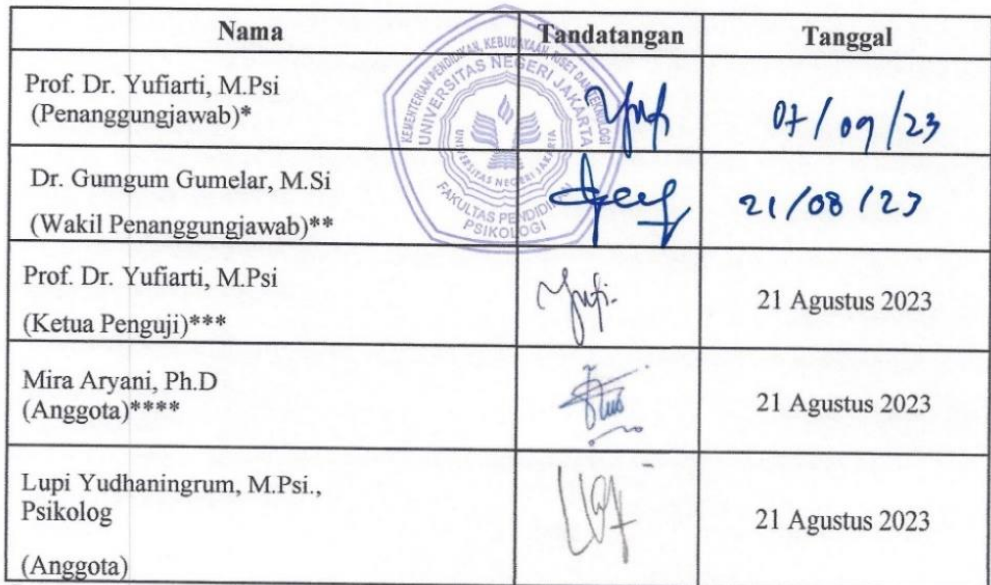 Nama Tandatangan Tanggal
Prof. Dr. Yufiarti, M.Psi
(Penanggungjawab)*
07/09/23
Dr. Gumgum Gumelar, M.Si
(Wakil Penanggungjawab)**
21/08/23
Prof. Dr. Yufiarti, M.Psi
(Ketua Penguji)***
21 Agustus 2023
Mira Aryani, Ph.D
(Anggota)****
21 Agustus 2023
Lupi Yudhaningrum, M.Psi.,
Psikolog
(Anggota)
21 Agustus 2023
KEMENTERIAN PENDIDIKAN, KEBUDAYAAN, RISET DAN TEKNOLOGI
UNIVERSITAS NEGERI JAKARTA
UNIVERSITAS NEGERI JAKARTA
FAKULTAS PENDIDIKAN
PSIKOLOGI